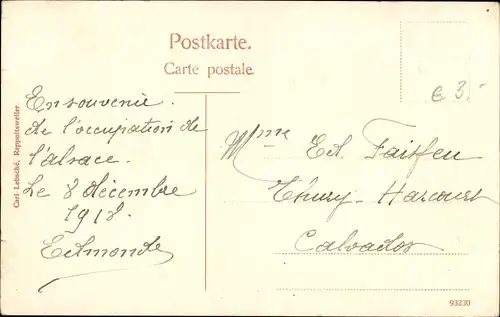 Postkarte.
Carte postale.
€ 3.-
En souvenir
de l'occupation de
l'alsace.
Le 8 décembre
1918.
Edmonde
Mme Ed. Faiffeu
Thury-Harcourt
Calvados
Carl Lebsché, Rappoltsweiler
93230